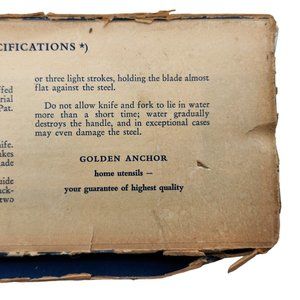 CIFICATIONS *)
ffed
rial
Pat.
nife.
akes
lade
uide
uck-
two
or three light strokes, holding the blade almost
flat against the steel.
Do not allow knife and fork to lie in water
more than a short time; water gradually
destroys the handle, and in exceptional cases
may even damage the steel.
GOLDEN ANCHOR
home utensils —
your guarantee of highest quality